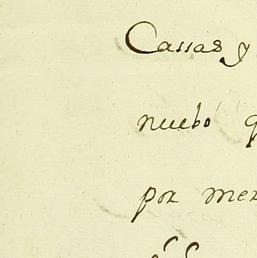 Cassas y
nuebo q
por mer